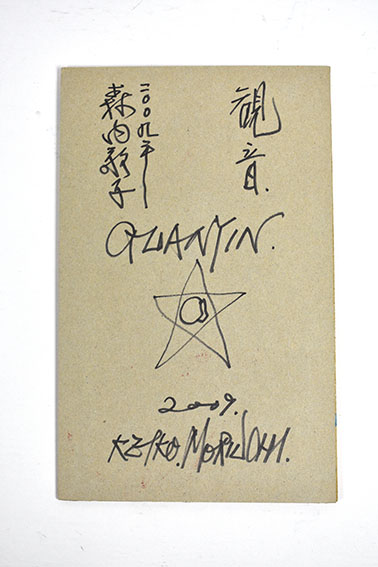 観音.
二〇〇九年
森内敬子
QUANYIN.
2009.
KEIKO.MORIUCHI.